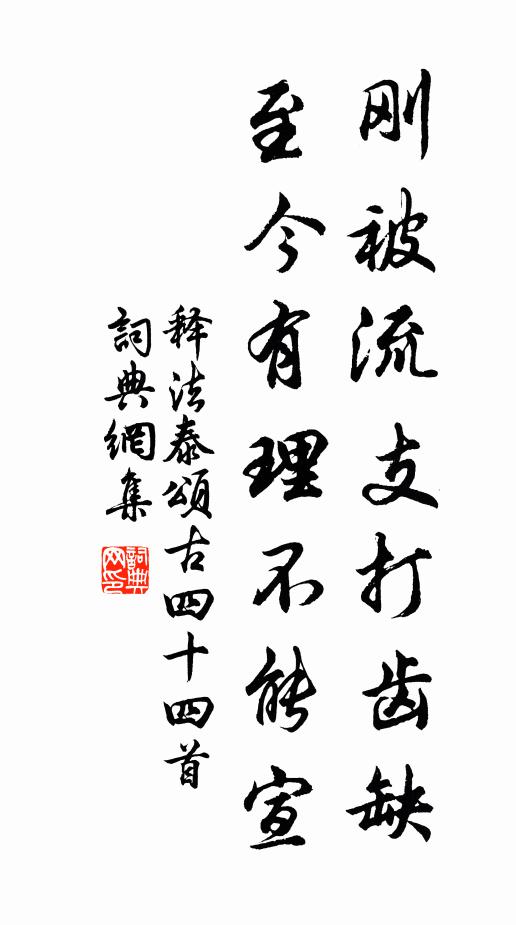 刚被流支打齿缺
至今有理不能宣
释法泰頌古四十四首
詞典網集
詞典网印